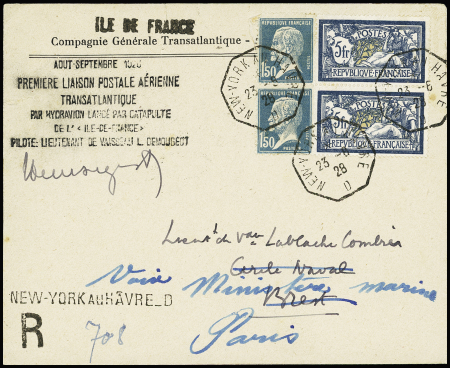 ÎLE DE FRANCE
Compagnie Générale Transatlantique -
AOUT-SEPTEMBRE 1928
PREMIÈRE LIAISON POSTALE AÉRIENNE
TRANSATLANTIQUE
PAR HYDRAVION LANCÉ PAR CATAPULTE
DE L'"ILE-DE-FRANCE"
PILOTE: LIEUTENANT DE VAISSEAU L. DEMOUGEOT
Demougeot
1F50
1F50
POSTES
5fr
REPUBLIQUE FRANÇAISE
5fr
REPUBLIQUE FRANÇAISE
NEW-YORK AU HÂVRE D
23 -8
28
NEW-YORK AU HÂVRE D
23 -8
28
HÂVRE
23 -8
Lieut. de Vau Lablache Combier
Cercle Naval
Voir Ministère marine
Brest
Paris
NEW-YORK AU HÂVRE_D
R
708